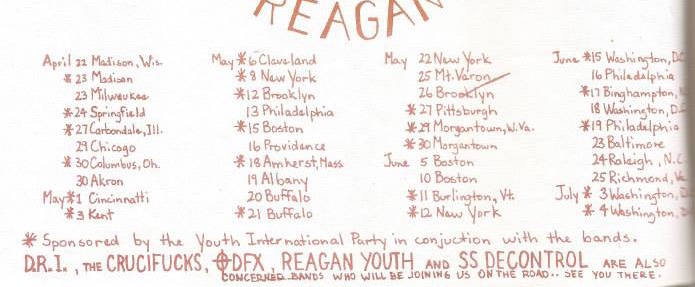 REAGAN
April 22 Madison, Wis.
* 23 Madison
23 Milwaukee
* 24 Springfield
* 27 Carbondale, Ill.
29 Chicago
* 30 Columbus, Oh.
30 Akron
May * 1 Cincinnatti
* 3 Kent
May * 6 Cleveland
* 9 New York
* 12 Brooklyn
13 Philadelphia
* 15 Boston
16 Providence
* 18 Amherst, Mass
19 Albany
20 Buffalo
* 21 Buffalo
May 22 New York
25 Mt. Varon
26 Brooklyn
* 27 Pittsburgh
* 29 Morgantown, W.Va.
* 30 Morgantown
June 5 Boston
10 Boston
* 11 Burlington, Vt.
* 12 New York
June * 15 Washington, D.C
16 Philadelphia
* 17 Binghampton, N
18 Washington, D.
* 19 Philadelphia
23 Baltimore
24 Raleigh, N.C.
25 Richmond, Va
July * 3 Washington, D.
* 4 Washington, D.
* Sponsored by the Youth International Party in conjuction with the bands.
D.R.I., THE CRUCIFUCKS, DFX, REAGAN YOUTH AND SS DECONTROL ARE ALSO
CONCERNED BANDS WHO WILL BE JOINING US ON THE ROAD.. SEE YOU THERE.